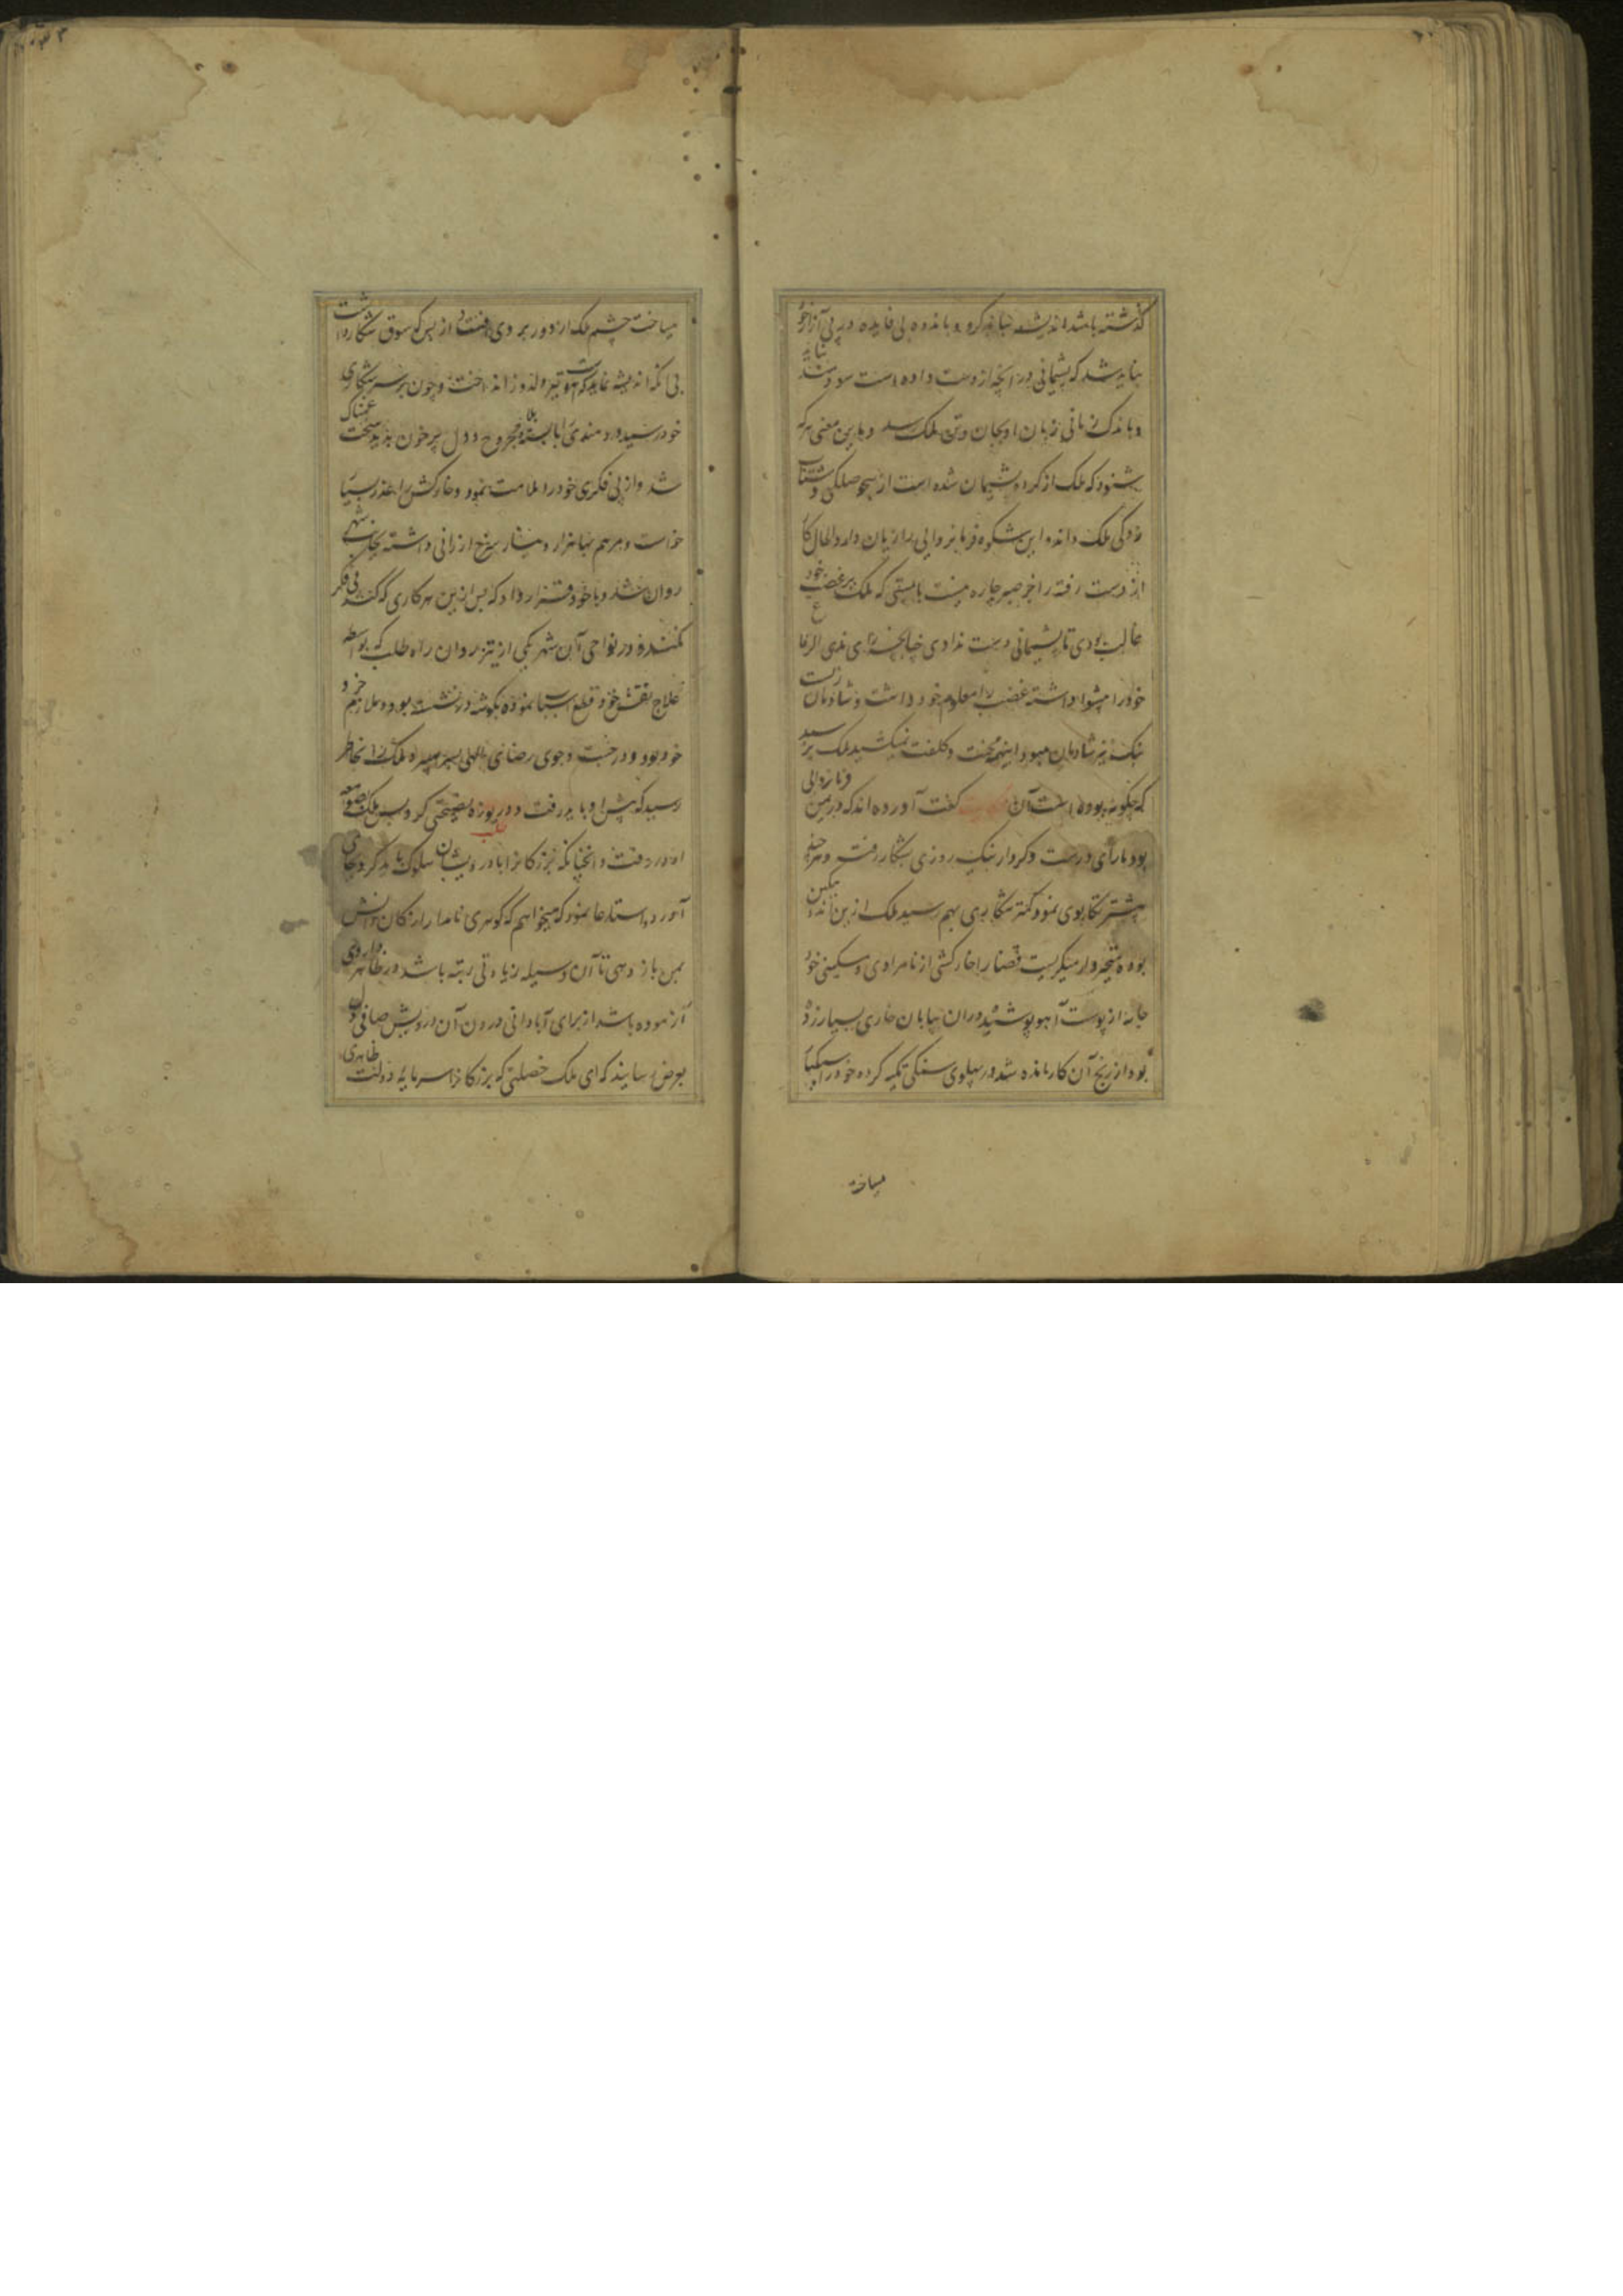 گذشته باشد اندیشه نباید کرد و باندوه بی فایده در پی آزار خود
نباید شد که پشیمانی در آنچه از دست داده است سود نباید
و باندک زمانی زیان او بجان و تن ملک رسد و باین معنی هر که
بشنود که ملک از کرده پشیمان شده است از بیحوصلکی و شتاب
زدکی ملک داند و این شکوه فرمانروایی را زیان دارد و الحال کار
از دست رفته را جز صبر چاره نیست بایستی که ملک بر غضب خود
غالب بودی تا پشیمانی دست ندادی چنانچه
خود را پیشوا داشته غضب را معلوم خود داشت و شادمان زیست
نیز شادمان میبود و اینهمه محنت و کلفت نمیکشید ملک پرسید
که چکونه بوده است آن حکایت گفت آورده اند که در یمن فرمانروایی
بود با رای درست و کردار نیک روزی بشکار رفت و هر چند
بیشتر تکاپوی نمود کمتر شکاری بهم رسید ملک ازین اندوهکین
بوده متحیر وار مینکریست قضا را خارکشی از نامرادی و مسکینی خود
جامه از پوست آهو پوشیده در آن بیابان خاری بسیار زده
بود از رنج آن کار مانده شده در پهلوی سنکی تکیه کرده خود را
میساخت
میساخت چشم ملک از دور بر وی افتاد از بس که شوق شکار داشت
بی آنکه اندیشه نماید که آهوست تیر دلدوز انداخت و چون بر سر شکاری
خود رسید دردمندی را با سینه مجروح و دل پر خون بدید سخت غمناک
شد و از بی فکری خود را ملامت نمود و خارکش را عذر بسیار
خواست و مرهم بها هزار دینار سرخ ارزانی داشته بجانب شهر
روان شد و با خود قرار داد که پس ازین هر کاری که کند بی فکر
نکند و در نواحی آن شهر یکی از تیزروان راه طلب که بواسطه
علاج نفس خود قطع اسباب نموده بکوشه در نشسته بود و ملازم خرد
خود بود و در جست و جوی رضای الهی بسر میبرد ملک را بخاطر
رسید که پیش او باید رفت و دریوزه نصیحتی کرد پس ملک بصومعه
او در رفت و آنچنانکه بزرکان را با درویشان سلوک باید کرد بجای
آورد و استدعا نمود که میخواهم که کوهری نامدار از کان دانش
بمن باز دهی تا آن وسیله زیادتی رتبه باشد در ظاهر داروی
آزموده باشد از برای آبادانی درون آن درویش صافی دل
بعرض رسانید که ای ملک خصلتی که بزرکان را سرمایه دولت ظاهری